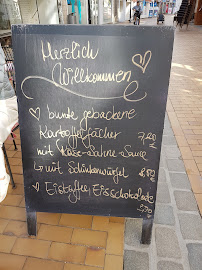 Herzlich
Willkommen
bunte gebackene
Kartoffelfächer
mit Käse-Sahne-Sauce
mit Schinkenwürfel
Eiskaffee, Eisschokolade